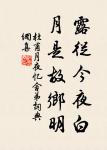 露從今夜白
月是故鄉明
杜甫月夜憶舍弟詞典